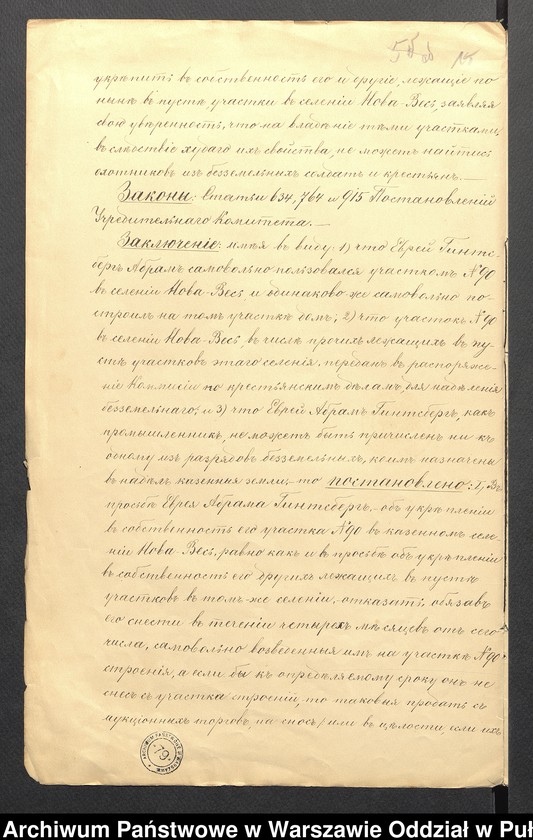 укрѣпить въ собственность его и другіе, лежащіе по
нынѣ въ пустѣ участки въ селеніи Нова-Весь, заявляя
свою увѣренность, что на владѣніе тѣми участками,
въ слѣдствіе худаго ихъ свойства, не можетъ найтись
охотниковъ изъ безземельныхъ солдатъ и крестьянъ. —
Законы: Статьи 634, 764 и 915 Постановленій
Учредительнаго Комитета. —
Заключеніе: имѣя въ виду: 1) что Еврей Гинтс-
бергъ Абрамъ самовольно пользовался участкомъ №90
въ селеніи Нова-Весь, и одинаково же самовольно по-
строилъ на томъ участкѣ домъ; 2) что участокъ №90
въ селеніи Нова-Весь, въ числѣ прочихъ лежащихъ въ пу-
стѣ участковъ этаго селенія, переданъ въ распоряже-
ніе Коммисіи по крестьянскимъ дѣламъ, для надѣленія
безземельнаго; и 3) что Еврей Абрамъ Гинтсбергъ, какъ
промышленникъ, не можетъ быть причисленъ ни къ
одному изъ разрядовъ безземельныхъ, коимъ назначены
въ надѣлъ казенныя земли, — то постановлено: 1) Въ
просьбѣ Еврея Абрама Гинтсберга, — объ укрѣпленіи
въ собственность его участка №90 въ казенномъ селе-
ніи Нова-Весь, равно какъ и въ просьбѣ объ укрѣпленіи
въ собственность его другихъ лежащихъ въ пустѣ
участковъ въ томъ-же селеніи, — отказать, обязавъ
его снести въ теченіи четырехъ мѣсяцевъ отъ сего
числа, самовольно возведенныя имъ на участкѣ №90
строенія, а если бы къ опредѣляемому сроку онъ не
снесъ съ участка строеній, то таковыя продать съ
аукціонныхъ торговъ, на сносъ, или въ цѣлости, если ихъ
79
Archiwum Państwowe w Warszawie Oddział w Puł